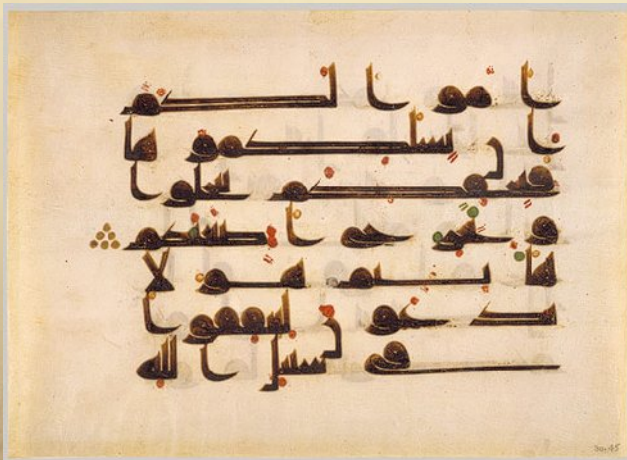 امولكم
ان يسلكموها
فيحفكم تبخلوا
ويخرج اضغنكم
هانتم هولا
تدعون لتنفقوا
في سبيل الله